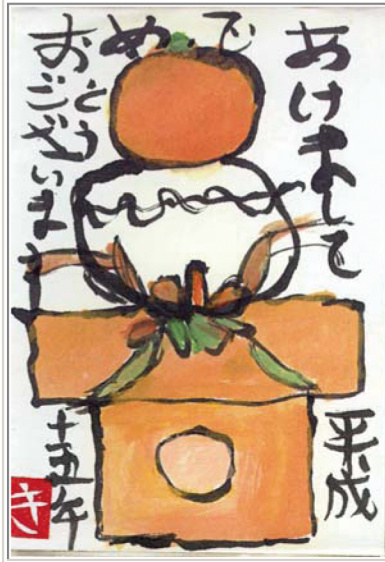 あけまして
おめで
とう
ございます
平成
十五年
き